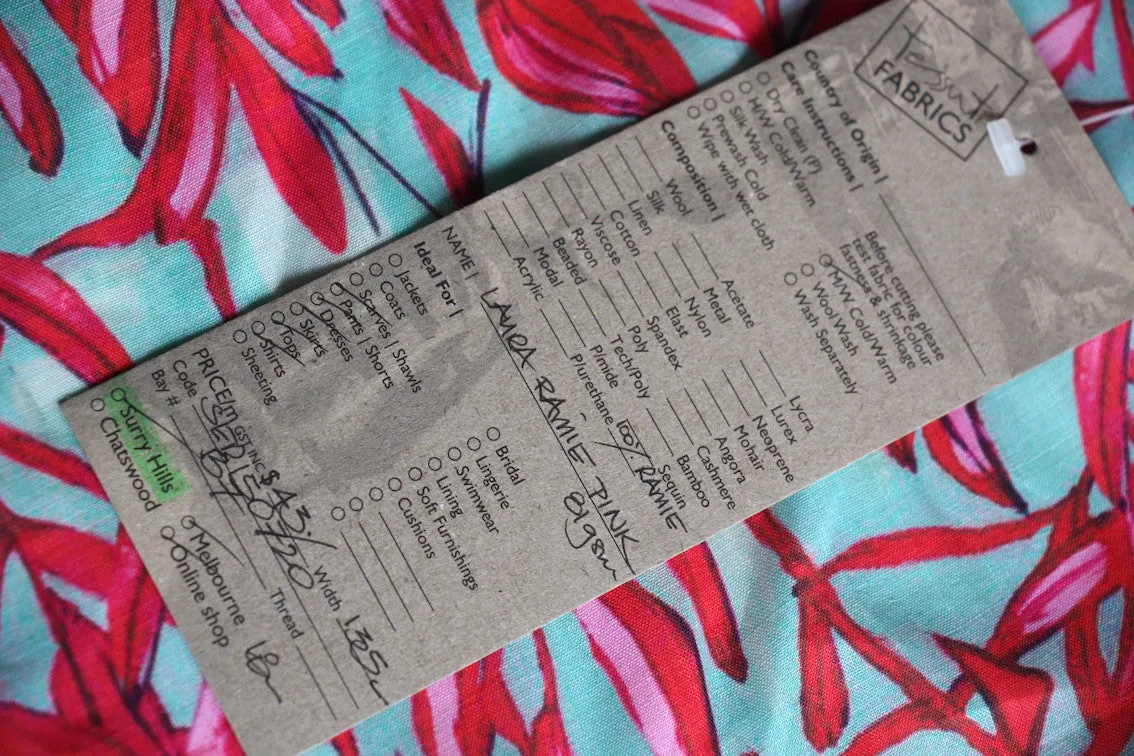 Tessuti
FABRICS
Country of Origin |
Care Instructions |
Dry Clean (P)
H/W Cold/Warm
Silk Wash
Prewash Cold
Wipe with wet cloth
Before cutting please
test fabric for colour
fastness & shrinkage
M/W Cold/Warm
Wool Wash
Wash Separately
Composition |
Wool
Silk
Linen
Cotton
Viscose
Rayon
Beaded
Modal
Acrylic
Acetate
Metal
Nylon
Elast
Spandex
Poly
Tech/Poly
P/mide
P/urethane
Lycra
Lurex
Neoprene
Mohair
Angora
Cashmere
Bamboo
Sequin
100% RAMIE
NAME | LAURA RAMIE PINK
Ideal For |
Jackets
Coats
Scarves | Shawls
Pants | Shorts
Dresses
Skirts
Tops
Shirts
Sheeting
Bridal
Lingerie
Swimwear
Lining
Soft Furnishings
Cushions
PRICE/M GST INC $ 43./ Width 135
Code
Bay #
Thread
Surry Hills
Chatswood
Melbourne
Online shop